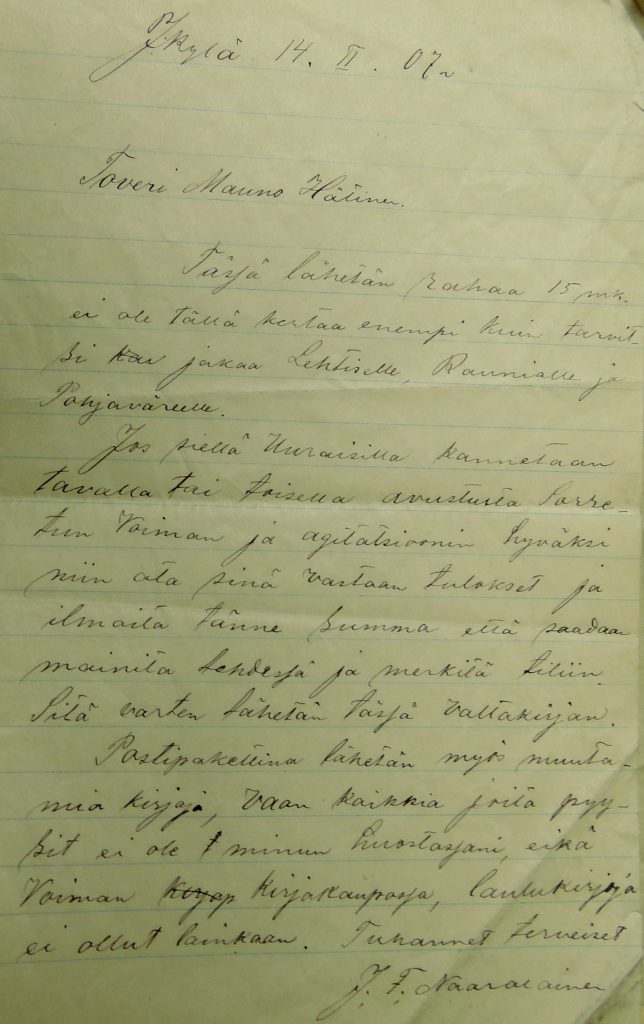 J:kylä 14. II. 07.
Toveri Mauno Hätinen.
Tässä lähetän rahaa 15 mk.
ei ole tällä kertaa enempi kuin tarvit-
si jakaa Lehtiselle, Raunialle ja
Pohjaväreelle.
Jos siellä Uuraisilla kannetaan
tavalla tai toisella avustusta Sorre-
tun Voiman ja agitatsioonin hyväksi
niin ota sinä vastaan tulokset ja
ilmoita tänne summa että saadaan
mainita lehdessä ja merkitä tiliin.
Sitä varten lähetän tässä valtakirjan.
Postipakettina lähetän myös muuta-
mia kirjoja, vaan kaikkia joita pyy-
sit ei ole minun huostassani, eikä
Voiman kirjakaupassa, laulukirjoja
ei ollut lainkaan. Tuhannet terveiset
J. F. Naaralainen